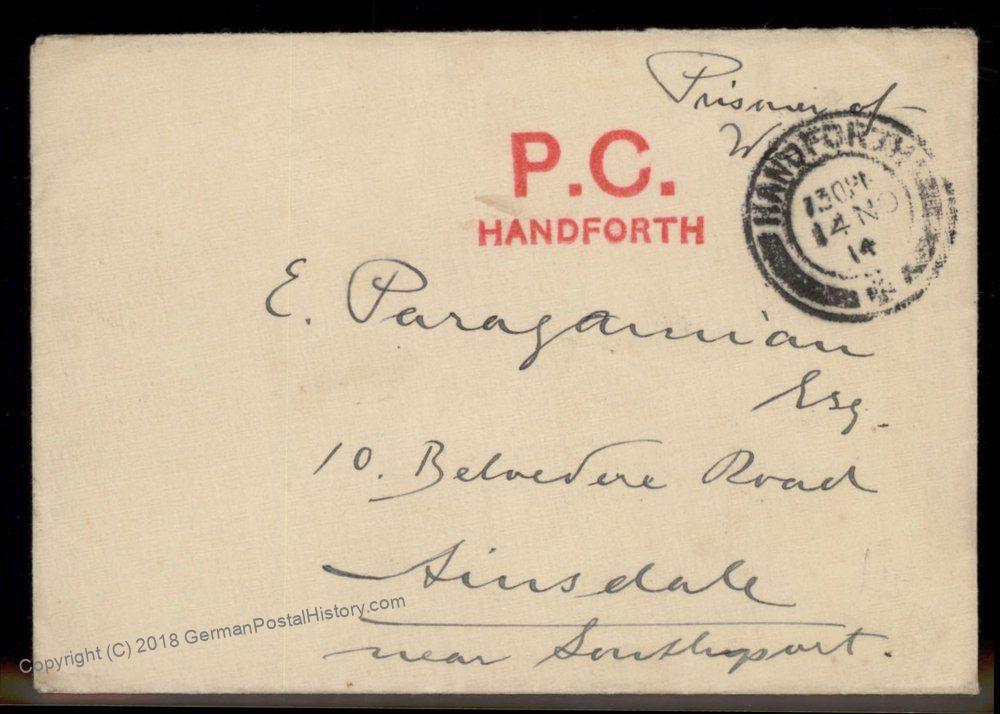 Prisoner of
W
P.C.
HANDFORTH
HANDFORTH
7 30 PM
14 NO
14
E. Paragamian
Esq.
10. Belvedere Road
Ainsdale
near Southport.
Copyright (C) 2018 GermanPostalHistory.com